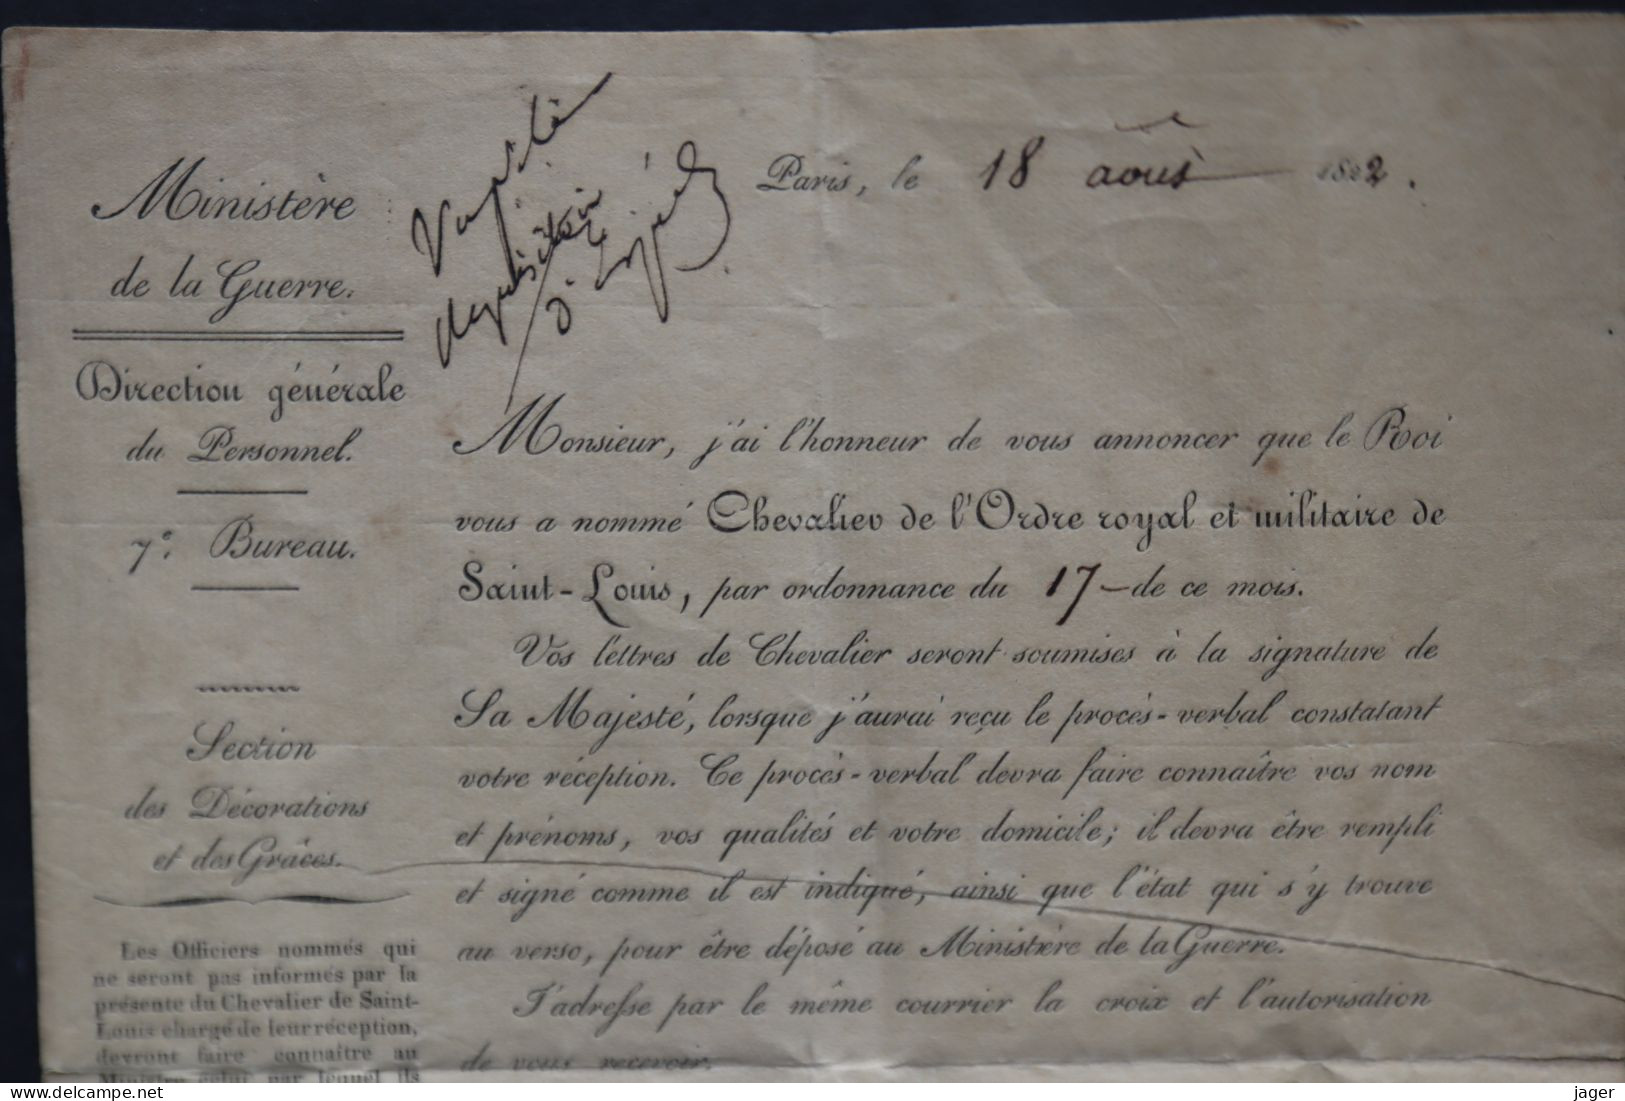 Paris, le 18 août 1822.
Ministère
de la Guerre.
Direction générale
du Personnel.
7e. Bureau.
Section
des Décorations
et des Grâces.
Les Officiers nommés qui
ne seront pas informés par la
présente du Chevalier de Saint-
Louis chargé de leur réception,
devront faire connaître au
Ministre celui par lequel ils
Monsieur, j'ai l'honneur de vous annoncer que le Roi
vous a nommé Chevalier de l'Ordre royal et militaire de
Saint-Louis, par ordonnance du 17 de ce mois.
Vos lettres de Chevalier seront soumises à la signature de
Sa Majesté, lorsque j'aurai reçu le procès-verbal constatant
votre réception. Ce procès-verbal devra faire connaître vos nom
et prénoms, vos qualités et votre domicile; il devra être rempli
et signé comme il est indiqué, ainsi que l'état qui s'y trouve
au verso, pour être déposé au Ministère de la Guerre.
J'adresse par le même courrier la croix et l'autorisation
de vous recevoir.
delcampe.net
jager